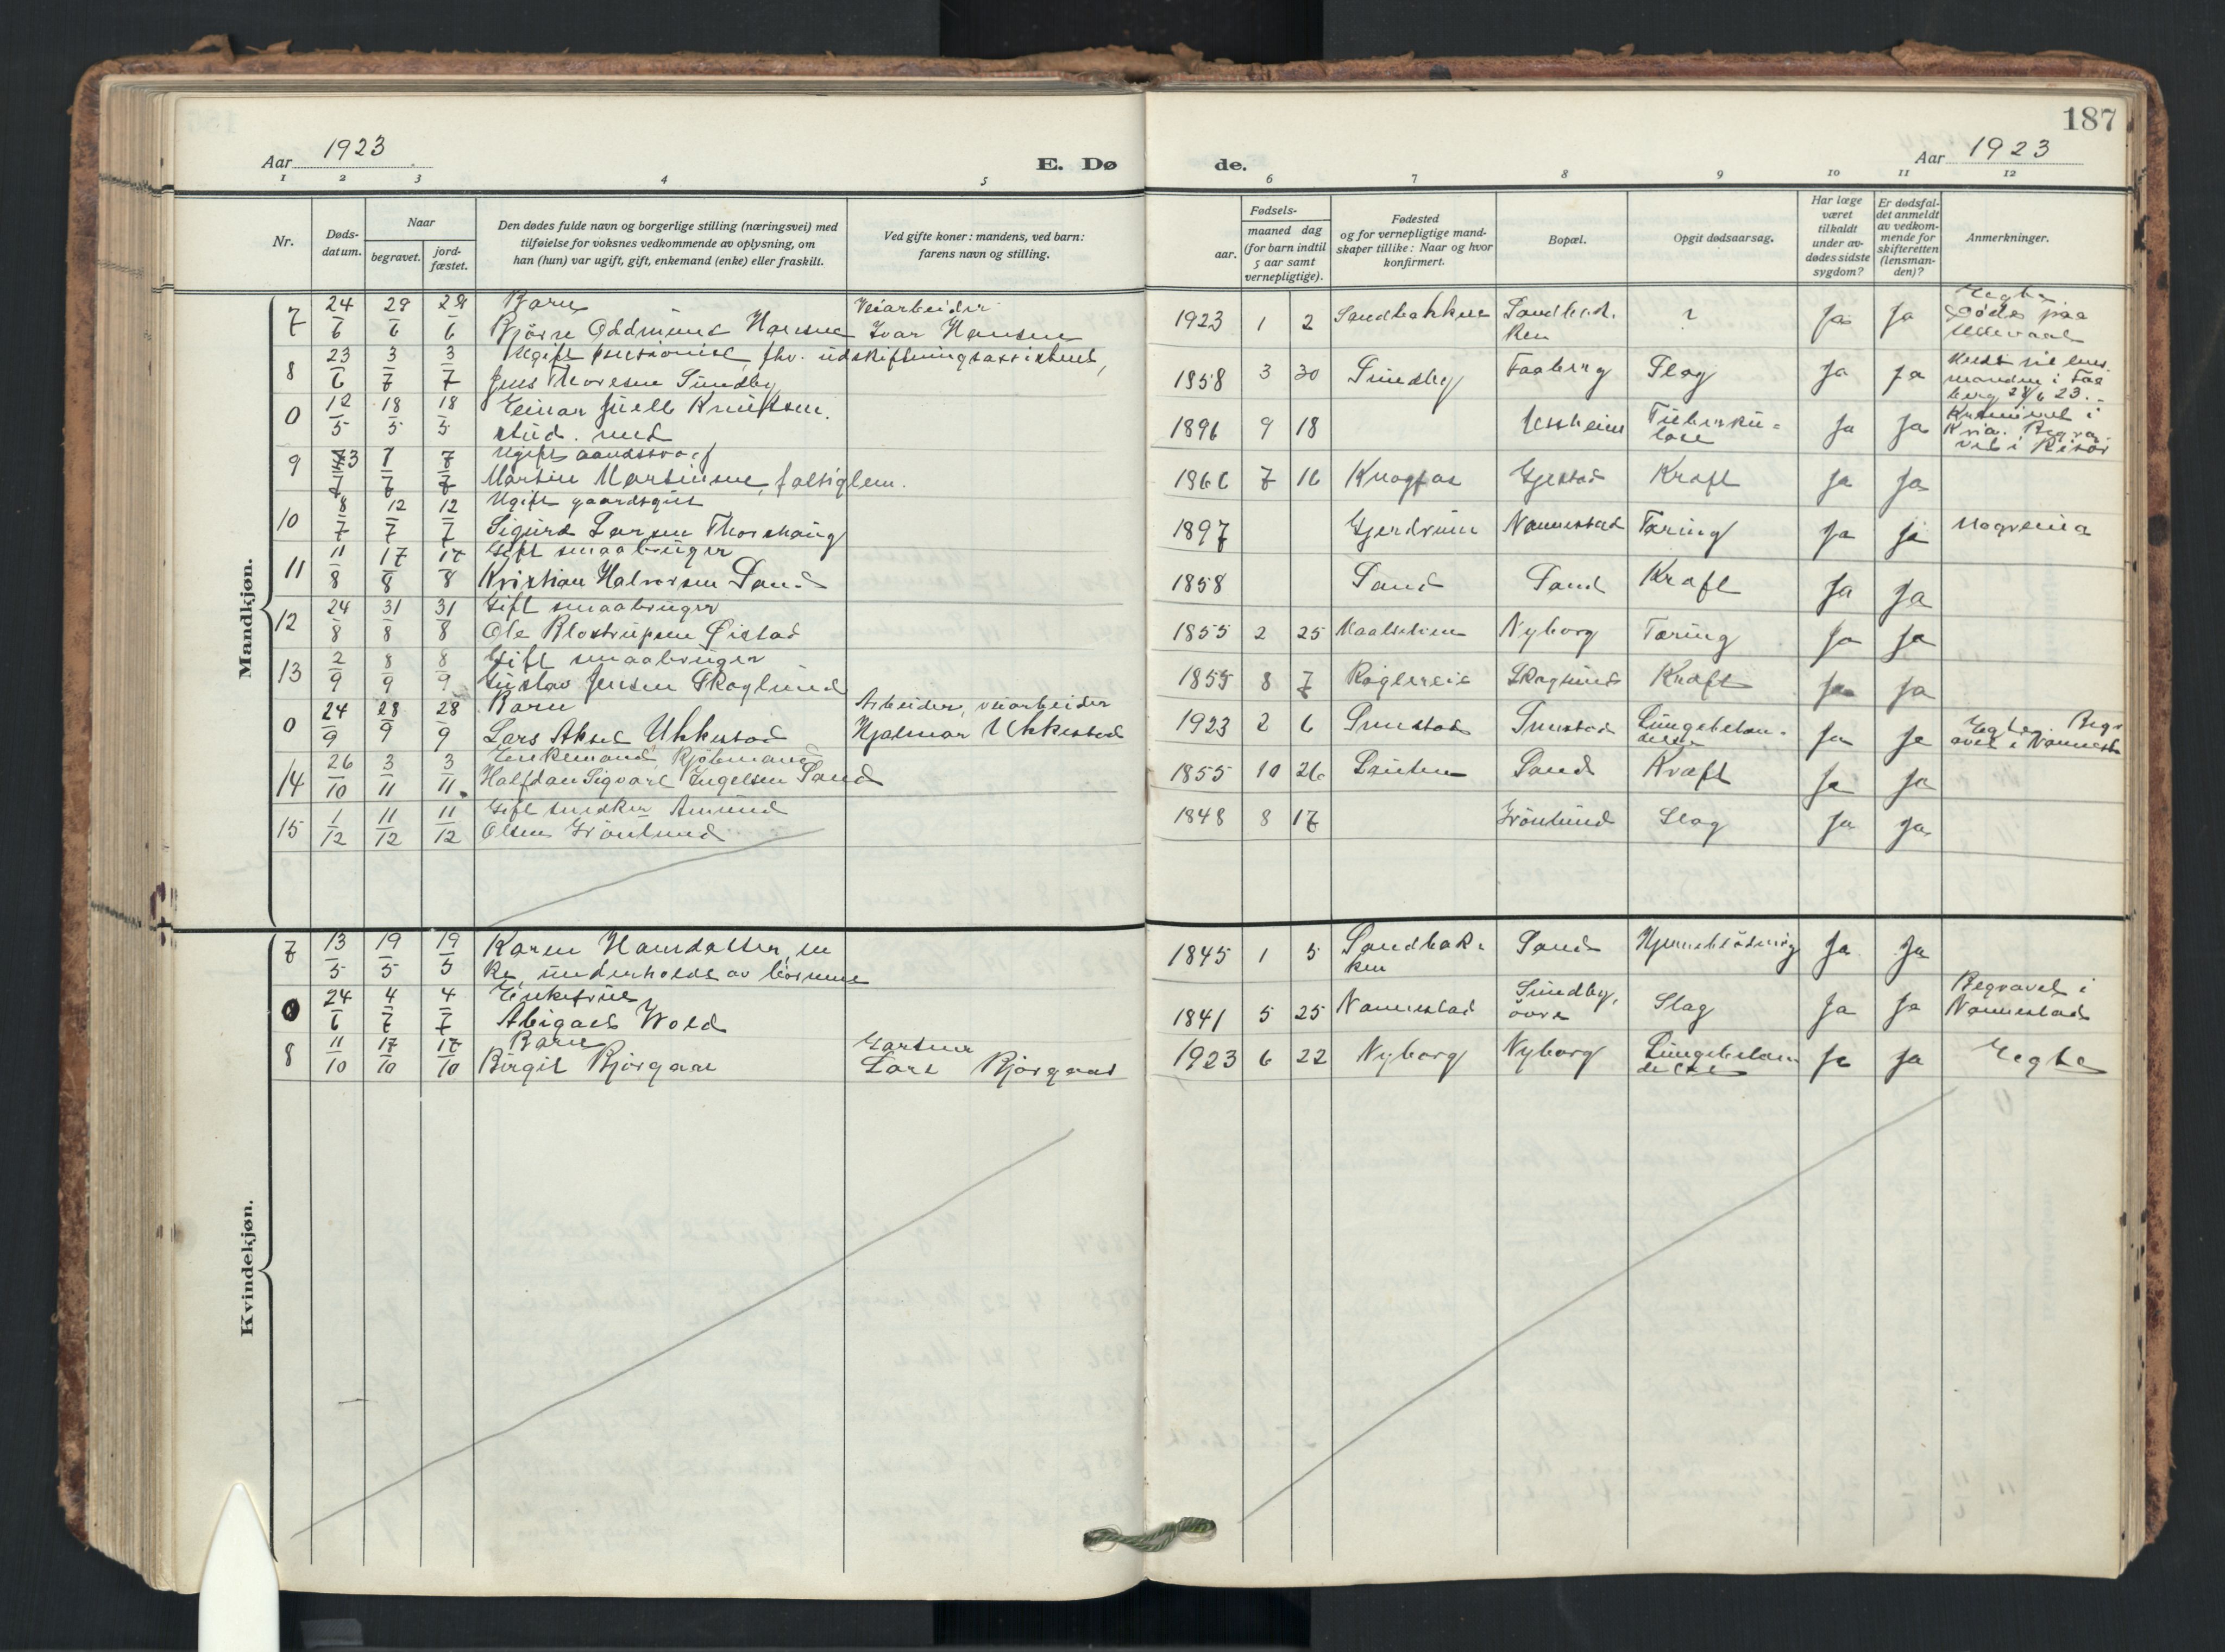 187
Aar 1923
E. Dø
de.
Aar 1923
1 2 3 4 5 6 7 8 9 10 11 12
Nr.
Døds-
datum.
Naar
begravet.
jord-
fæstet.
Den dødes fulde navn og borgerlige stilling (næringsvei) med
tilføielse for voksnes vedkommende av oplysning, om
han (hun) var ugift, gift, enkemand (enke) eller fraskilt.
Ved gifte koner: mandens, ved barn:
farens navn og stilling.
Fødsels-
aar.
maaned dag
(for barn indtil
5 aar samt
vernepligtige).
Fødested
og for vernepligtige mand-
skaper tillike: Naar og hvor
konfirmert.
Bopæl.
Opgit dødsaarsag.
Har læge
været
tilkaldt
under av-
dødes sidste
sygdom?
Er dødsfal-
det anmeldt
av vedkom-
mende for
skifteretten
(lensman-
den)?
Anmerkninger.
Mandkjøn.
7 24/6 28/6 28/6 Barn Veiarbeider
Bjørn Oddmund Hansen Ivar Hansen 1923 1 2 Sandbakken Sandbak-
ken ? Ja Ja Uegte
Døde paa
Ullevaal
8 23/6 3/7 3/7 Ugift pensionist, fhv. udskiftningsassistent,
Jens Thoresen Sundby 1858 3 30 Sundby Faaberg Slag Ja Ja Meldt til lens-
manden i Faa
berg 28/6 23.
0 12/5 18/5 18/5 Einar Juell Knutssen.
stud. med 1896 9 18 Jessheim Tuberku-
lose Ja Ja Kremeret i
Kria. Begra-
vet i Risør
9 3/7 7/7 7/7 Ugift aandssvag
Martin Martinsen, fattiglem. 1866 7 16 Knagfos Gjestad Kræft Ja Ja
10 8/7 12/7 12/7 Ugift gaardsgut
Sigurd Larsen Thorshaug 1897 Gjerdrum Nannestad Tæring Ja Ja
11 11/8 17/8 17/8 Gift smaabruger
Kristian Halvorsen Sand 1858 Sand Sand Kræft Ja Ja
12 24/8 31/8 31/8 Gift smaabruger
Ole Klostrupsen Øistad 1855 2 25 Nyborg Tæring Ja Ja
13 2/9 8/9 8/9 Gift smaabruger
Gustav Jensen Skoglund 1855 8 7 Skoglund Kræft Ja Ja
0 24/9 28/9 28/9 Barn Arbeider, veiarbeider
Lars Aksel Ukkestad Hjalmar Ukkestad 1923 2 6 Lungebeten-
delse Ja Ja Egte. Begr
avet i Nannest
14 26/10 3/11 3/11. Enkemand, Kjøbmand
Halfdan Sigvart Engelsen Sand 1855 10 26 Sand Kræft Ja Ja
15 1/12 11/12 11/12 Gift snedker Amund
Olsen Grønlund 1848 8 17 Grønlund Slag Ja Ja
Kvindekjøn.
7 13/5 19/5 19/5 Karen Hansdatter, en
ke underholdt av børnene 1845 1 5 Sandbak-
ken Sand Hjerneblødning Ja Ja
0 24/6 4/7 4/7 Enkefrue
Abigael Wold 1841 5 25 Nannestad Sundby,
øvre Slag Ja Ja Begravet i
Nannestad
8 11/10 17/10 17/10 Barn Gartner
Birgit Bjørgaas Lars Bjørgaas 1923 6 22 Nyborg Nyborg Lungebeten-
delse Ja Ja Egte